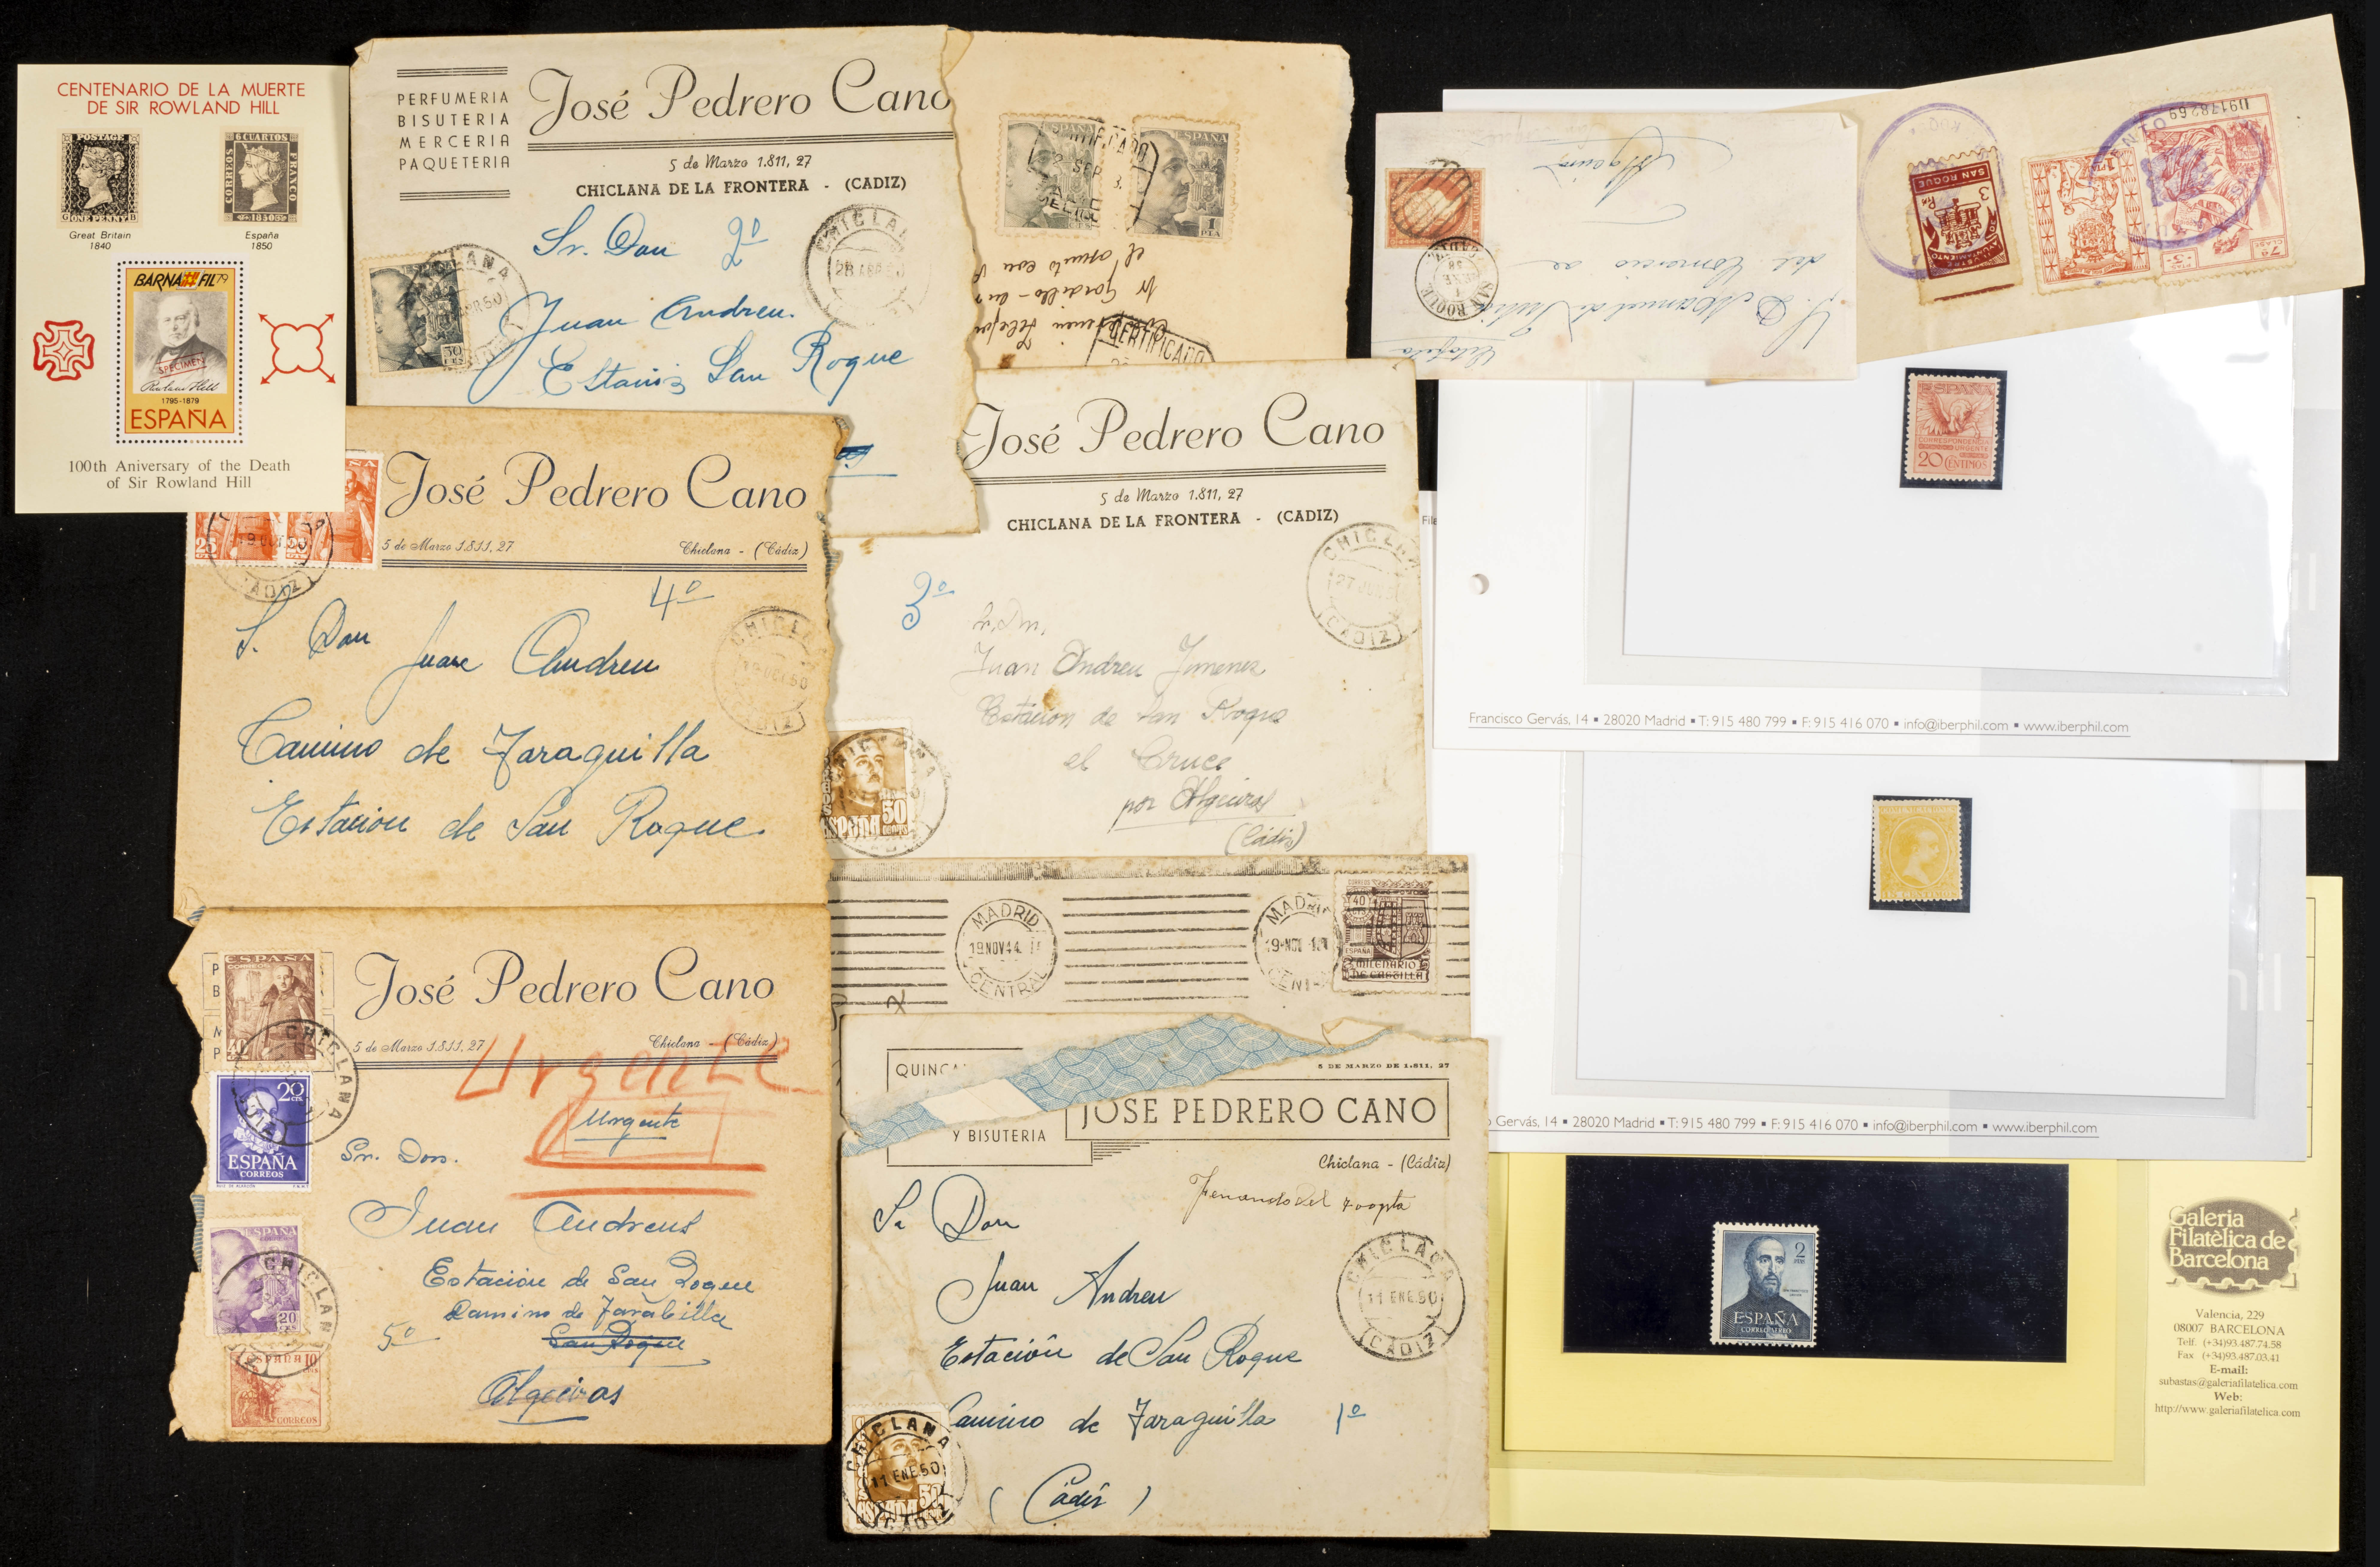 CENTENARIO DE LA MUERTE
DE SIR ROWLAND HILL
POSTAGE
ONE PENNY
6 CUARTOS
CORREOS
FRANCO
1850
Great Britain
1840
España
1850
BARNAFIL79
SPECIMEN
Rowland Hill
1795-1879
ESPAÑA
100th Aniversary of the Death
of Sir Rowland Hill
PERFUMERIA
BISUTERIA
MERCERIA
PAQUETERIA
José Pedrero Cano
5 de Marzo 1.811, 27
CHICLANA DE LA FRONTERA - (CADIZ)
Sr. Don 2º
Juan Andreu.
San Roque
ESPAÑA
ESPAÑA
1 PTA
CERTIFICADO
José Pedrero Cano
5 de Marzo 1.811, 27
Chiclana - (Cádiz)
4º
S. Don
Juan Andreu
Camino de Taraguilla
Estacion de San Roque.
CHICLANA
CADIZ
José Pedrero Cano
5 de Marzo 1.811, 27
CHICLANA DE LA FRONTERA - (CADIZ)
3º
Juan Andreu Jimenez
Estacion de San Roque
el Cruce
por Algeciras
(Cádiz)
José Pedrero Cano
5 de Marzo 1.811, 27
Chiclana - (Cádiz)
Urgente
Urgente
Sr. Don.
Juan Andreus
Estación de San Roque
Camino de Tarabilla
San Roque
5º
Algeciras
ESPAÑA
CORREOS
20 CTS
ESPAÑA
CORREOS
ESPAÑA
20
CHICLANA
ESPAÑA 10
CORREOS
MADRID
19 NOV 44
CENTRAL
MADRID
40
ESPAÑA
MILENARIO
DE CASTILLA
5 DE MARZO DE 1.811, 27
JOSE PEDRERO CANO
Y BISUTERIA
Chiclana - (Cádiz)
Sr Don
Juan Andreu
Estación de San Roque
Camino de Taraguilla 1º
(Cádiz)
CHICLANA
11 ENE.50
(CADIZ)
CHICLANA
11 ENE.50
CADIZ
SAN ROQUE
SAN ROQUE
3
AYUNTAMIENTO
U9178269
ESPAÑA
CORRESPONDENCIA
URGENTE
20 CÉNTIMOS
Francisco Gervás, 14 ▪ 28020 Madrid ▪ T: 915 480 799 ▪ F: 915 416 070 ▪ info@iberphil.com ▪ www.iberphil.com
15 CENTIMOS
Gervás, 14 ▪ 28020 Madrid ▪ T: 915 480 799 ▪ F: 915 416 070 ▪ info@iberphil.com ▪ www.iberphil.com
2
ESPAÑA
CORREO AEREO
Galeria
Filatèlica de
Barcelona
Valencia, 229
08007 BARCELONA
Telf. (+34)93.487.74.58
Fax (+34)93.487.03.41
E-mail:
subastas@galeriafilatelica.com
Web:
http://www.galeriafilatelica.com